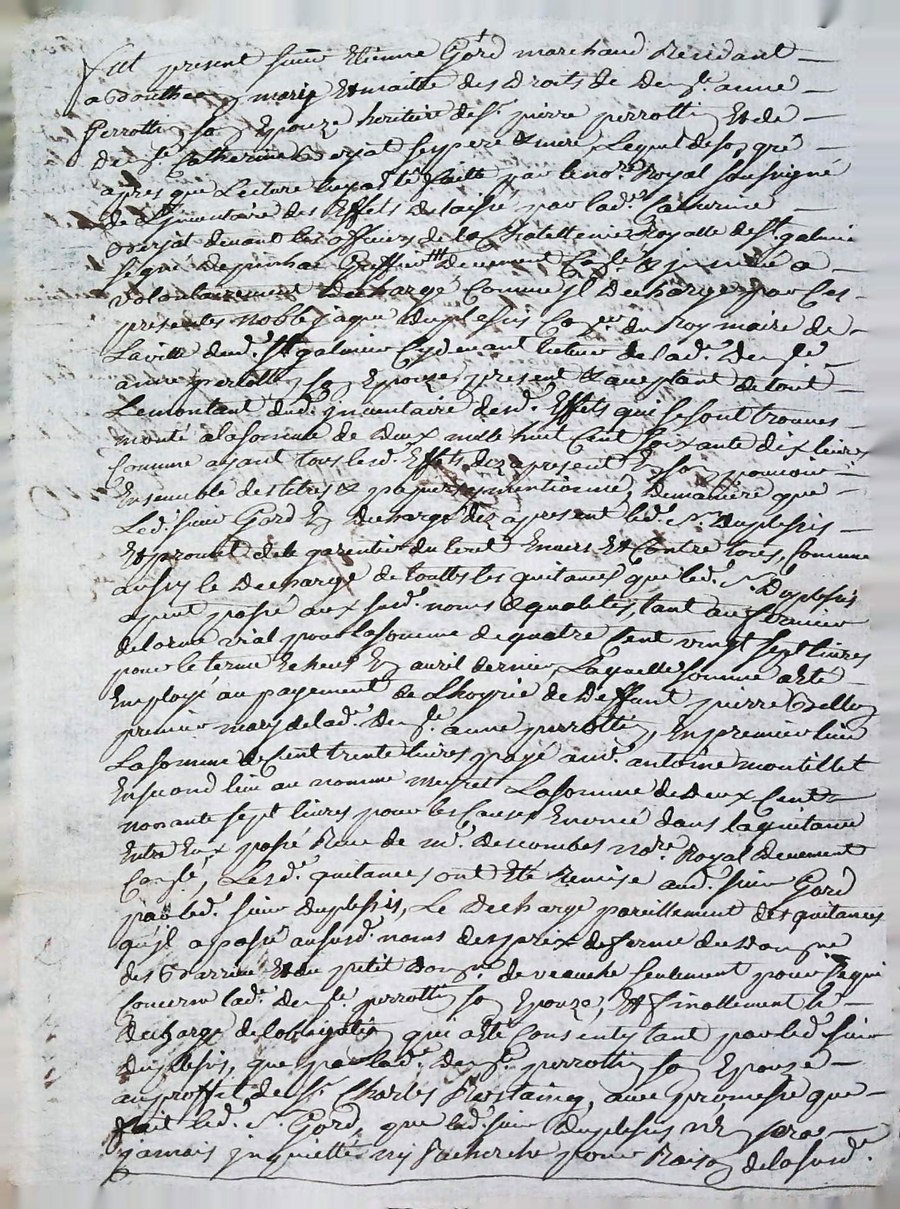 fut present sieur Etienne Gord marchand Residant
a Bouthéon mary Et maitre des Droits de Demlle. anne
Perrottin son Epouze heritiere de Sr. pierre perrottin Et de
demlle Catherine Verjat ses pere & mere, Lequel de son gré
apres que Lecture luy a été faitte par le nore. Royal soussigné
de l'Inventaire des Effets delaissé par lad. Catherine
Verjat devant les officiers de la Chatellenie Royalle de St. galmier
signé greffier Duement Conlé. & a
volontairement Decharge Comme jl Decharge par Ces
presentes noble jaque Duplessis Coner. du Roy maire de
La ville dud. St galmier Cydevant tuteur de lad. Demlle
anne perrottin son Epouze present & acceptant de tout
Le montant dud. jnventaire desd. Effets que se sont trouvés
monté a la somme de Deux mille huit Cent soixante dix livres
Comme ayant tous lesd. Effets dez apresent En son pouvoir
Ensemble des titres & papiers y mentionné, De maniere que
Led. sieur Gord En Decharge dez apresent led. Sr. Duplessis
Et promet de le garentir du tout Envers Et Contre tous, Comme
aussy le Decharge de touttes les quitances que led. Sr. Duplessis
ayent passé aux susd. noms & qualités, tant au fermier
de larue vial pour la somme de quatre Cent vingt sept livres
pour le terme Echeus En avril dernier Laquelle somme a été
Employé au payement de L'hoyrie de Deffunt pierre
premier mary de lad. Demlle. anne perrottin, En premier lieu
La somme de Cent trente livres payé aud. antoine montillet
En second lieu au nommé meyret La somme de Deux Cent
nonante sept livres pour les Causes Enoncé dans la quitance
Entre Eux passé Reçue de me. Descombes nore. Royal Duement
Conlé, Lesd. quitances ont Eté Remise aud. sieur Gord
par led. sieur Duplessis, Le Decharge pareillement des quitances
qu'jl a passé au susd. noms des prix de ferme du Domayne
des Et du petit Domne. de veauche seulement pour ce qui
Concerne lad. Demlle. perrottin son Epouze, Et finallement le
Decharge de l'obligation qui a été Consenty tant par led. sieur
Duplessis, que par lad. Demlle. perrottin son Epouze
au proffit de Sr. Charles Rostaing, avec promesse que
fait led. Sr. Gord, que led. sieur Duplessis n'en sera
jamais jnquietté ny Recherché pour Raison de la susd.